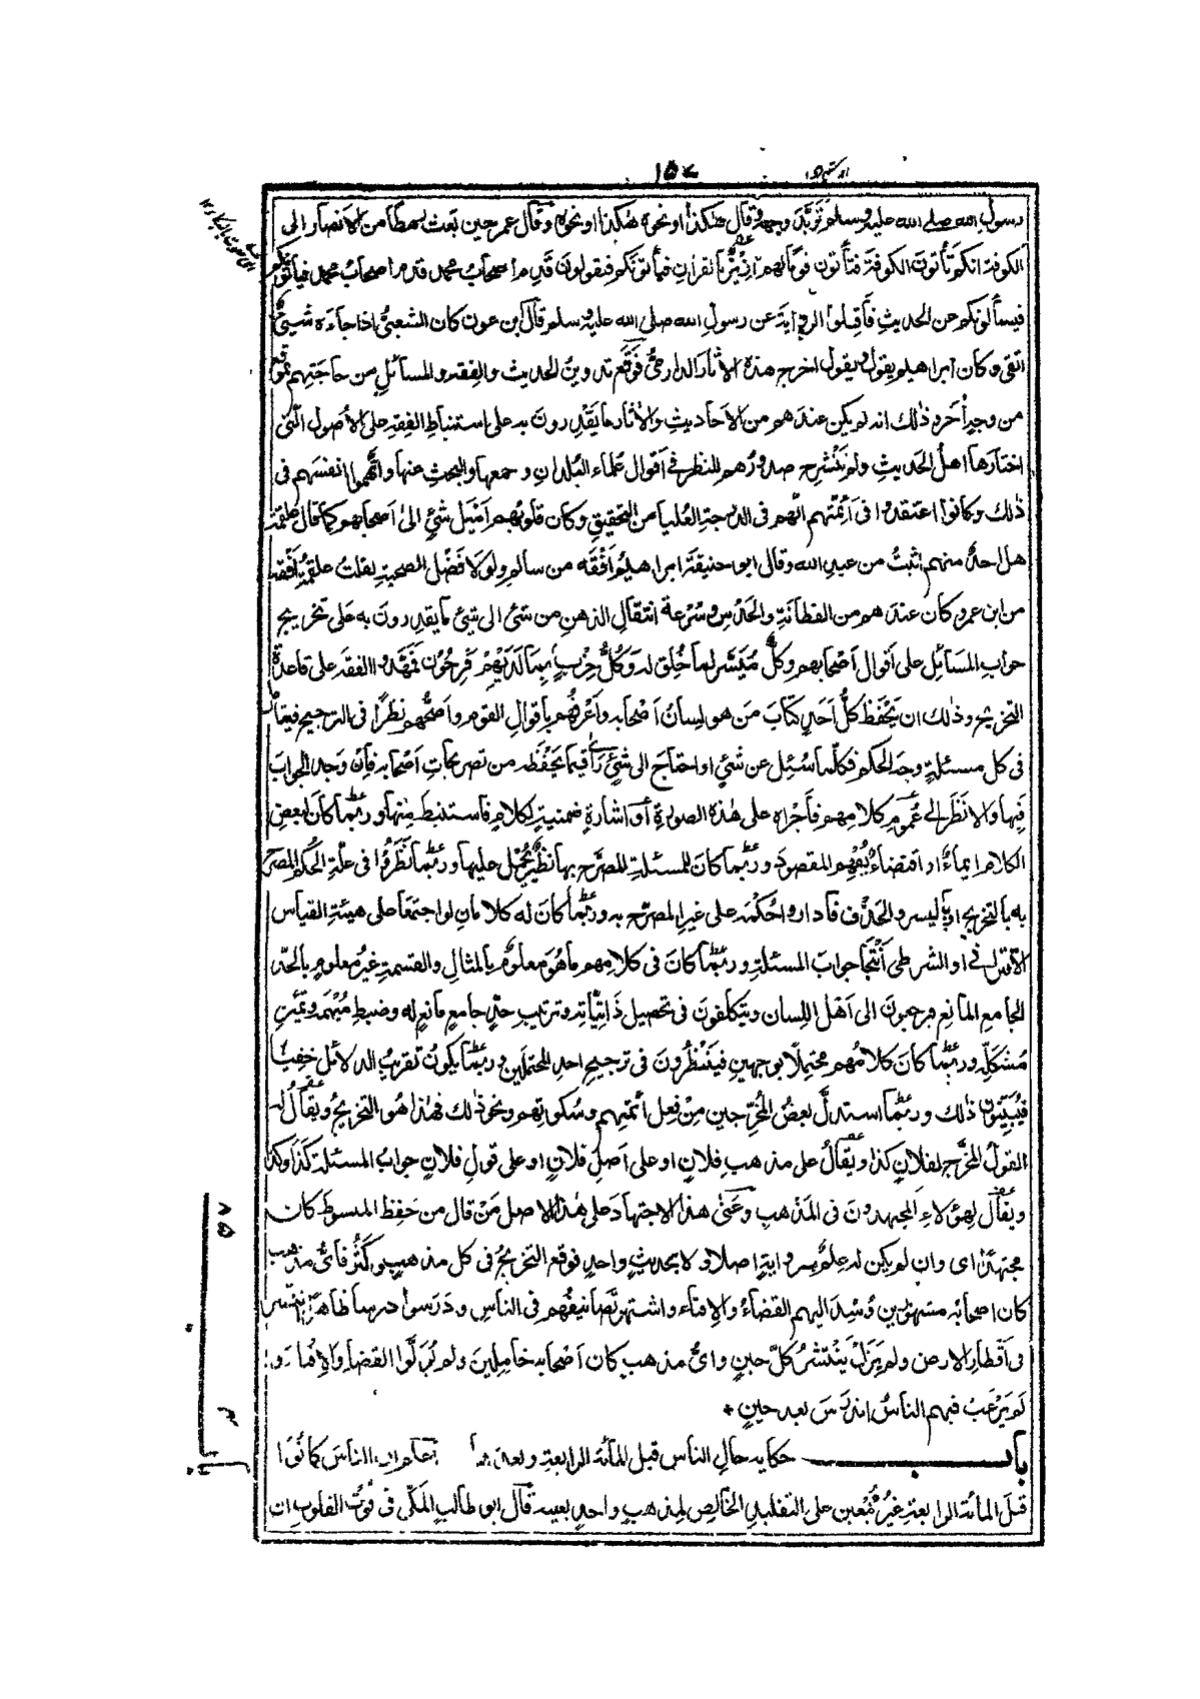 ١٥٧
رسول الله صلى الله عليه وسلم تَرَبَّدَ وجهه وقال هٰكذا او نحوه هٰكذا او نحوه وقال عمر حين بَعث رهطًا من الانصار الى
الكوفة انكم تأتون الكوفة فتأتون قومًا لهم ازيزٌ بالقرآن فيأتونكم فيقولون قَدِم اصحابُ محمد قَدِم اصحابُ محمد فيأتونكم
فيسألونكم عن الحديثِ فأَقِلّوا الروايةَ عن رسول الله صلى الله عليه وسلم قال ابن عون كان الشعبيُّ اذا جاءه شيئٌ
اتقى وكان ابراهيم يقول ويقول اخرج هذه الآثار الدارميُّ فوَقَع تدوينُ الحديث والفِقه والمسائل من حاجتِهم بموقعٍ
من وجهٍ آخر وذٰلك انه لم يكن عندهم من الاحاديثِ والآثار ما يَقْدِرون به على استنباطِ الفقهِ على الأصول التى
اختارها اهلُ الحديثِ ولم تَنْشرِح صدورُهم للنظر فى أقوال عُلماء البُلدانِ وجمعِها والبحثِ عنها واتَّهموا انفسَهم فى
ذٰلك وكانوا اعتقدوا فى أئمتهم انّهم فى الدرجة العُليا من التحقيقِ وكان قلوبُهم اَمْيَل شئٍ الىٰ اَصحابهم كما قال علقمة
هل احدٌ منهم اثبتُ من عبدِ الله وقال ابو حنيفة ابراهيمُ اَفْقَه من سالمٍ ولو لا فَضْل الصحبةِ لقلتُ علقمةُ اَفْقَه
من ابن عمر وكان عندهم من الفطانة والحَدْسِ وسُرعةِ انتقالِ الذهنِ من شئ الى شئ ما يقدِرون به على تخريج
جواب المسَائلِ على اَقوال اَصْحابهم وكلٌّ مُيَسَّر لما خُلِق له وَكُلُّ حِزْبٍ بِمَا لَدَيْهِمْ فَرِحُوْن فمَهَّدوا الفقهَ على قاعدةِ
التخريج وذٰلك ان يَحْفَظ كلُّ اَحَدٍ كتابَ مَن هو لسانُ اَصْحابه واَعْرفُهم بأقوال القومِ واَصحُّهم نظرًا فى الترجيحِ فيتأمل
فى كل مسئلةٍ وجهَ الحكمِ فكلما سُئِل عن شئٍ او احتاج الى شئٍ رأٰى فيما يَحْفَظه من تصريحاتِ اَصْحابه فاِنْ وَجد الجوابَ
فيها والا نَظَر الى عُمومِ كلامِهم فأَجْراه على هٰذه الصورةِ اَو اشارةٍ ضمنيةٍ لكلامٍ فاستنبَط منها وربّما كان لبعضِ
الكلامِ ايماءٌ او اقتضاءٌ يُفهِم المقصود وربّما كان للمسئلةِ المصرَّح بها نظيرٌ يُحمَل عليها وربّما نَظَرُوا فى علّةِ الحُكم المصرح
به بالتخريج او باليسر والحَذف فأداروا حُكْمَه على غيرِ المصرّح به وربّما كان له كلامانِ لو اجتمَعا على هيئةِ القياسِ
الاقترانى او الشرطى اَنْتَجَا جوابَ المسئلةِ وربّما كان فى كلامِهم ما هُوَ معلومٌ بالمثالِ والقسمةِ غيرُ معلومٍ بالحدّ
الجامعِ المانعِ فيرجعون الى اَهْل اللِسان ويتكلفون فى تحصيل ذَاتِيّاته وترتيبِ حدٍّ جامعٍ مانعٍ له وضبطِ مُبْهَمه وتميّزِ
مُشكَلِه وربّما كان كلامُهم محتمِلًا بوجهينِ فيَنْظُرون فى ترجيحِ احدِ المحتملَين وربّما يكونُ تقريبُ الدلائلِ خفِيًّا
فيُبَيّنون ذٰلك وربّما استدلَّ بعضُ المُخرّجين مِنْ فِعل أئمتهم وسُكوتِهم ونحو ذٰلك فهٰذا هُو التخريجُ ويقالُ له
القولُ المخرَّج لفلان كذا ويقالُ على مذهبِ فلانٍ او على اَصلِ فلانٍ او على قولِ فلانٍ جوابُ المسئلة كَذا وكذا
ويقال لهؤلاءِ المجتهدون فى المَذْهبِ وعَنىٰ هذا الاجتهادَ على هٰذا الاصل مَنْ قال من حَفِظ المبسوطَ كان
مجتهدًا اى وان لم يكن له عِلمٌ بروايةٍ اصلا ولا بحديثٍ واحدٍ فوقع التخريجُ فى كل مذهبٍ وكَثُر فأىُّ مذهبٍ
كان اصحابُه مشهورين وُسِد اليهم القضاءُ والافتاء واشتهر تصانيفُهم فى الناسِ ودَرَسوا درسًا ظاهرًا انتشر
فى اَقْطارِ الارضِ ولم يَزَلْ يَنْتشرُ كلَّ حينٍ وأىُّ مذهبٍ كان اَصْحابه خامِلِينَ ولم يُوَلّوا القضاءَ والافتاءَ و
لَم يَرْغَبْ فيهم الناسُ اندَرسَ بعد حينٍ +
باب حكاية حالِ الناس قبل المأئة الرابعةِ وبعدَها اعلم ان الناسَ كانُوا
قبلَ المأئة الرابعةِ غيرُ مُجْمَعين على التقليدِ الخالِصِ لمذهبٍ واحدٍ بعينه قال ابو طالبٍ المَكّى فى قُوتُ القلوبِ ان